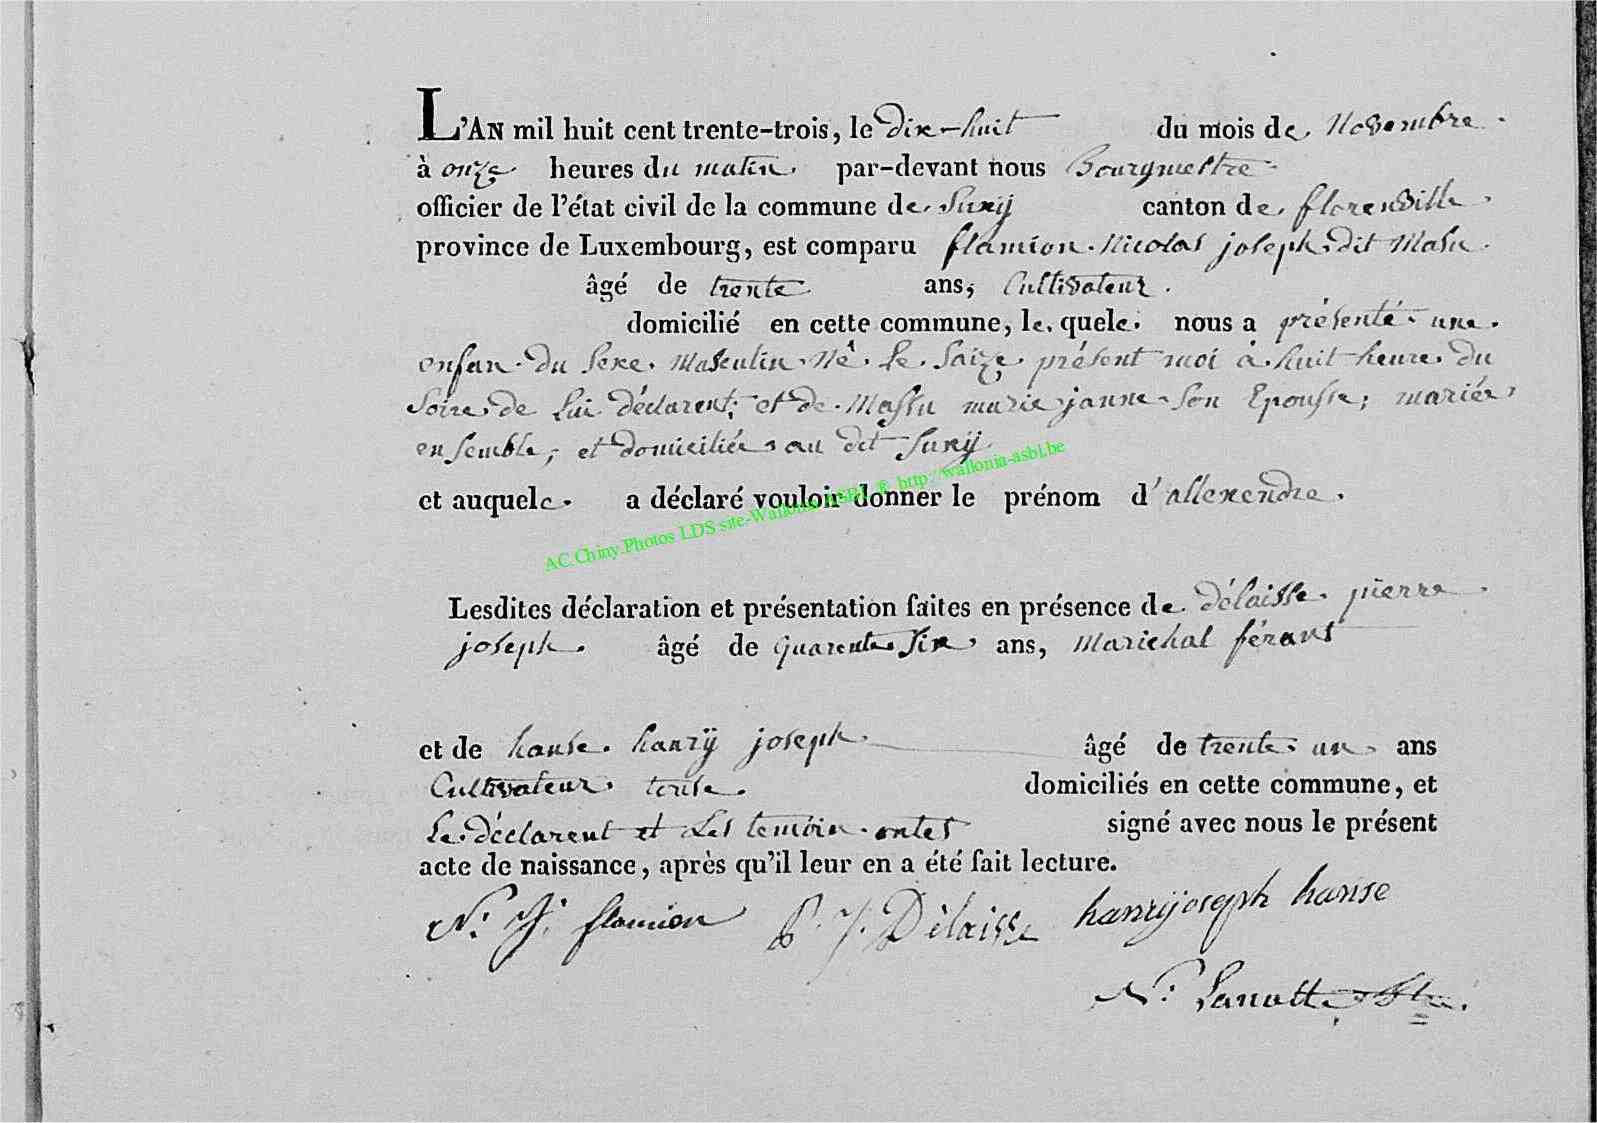 L'AN mil huit cent trente-trois, le dix-huit du mois de Novembre
à onze heures du matin par-devant nous Bourgmestre
officier de l'état civil de la commune de Suxÿ canton de florenville
province de Luxembourg, est comparu flamion Nicolas joseph dit Masu
âgé de trente ans, Cultivateur.
domicilié en cette commune, le quele nous a présenté une
enfan du sexe Masculin Né le Saize présent moi à huit heure du
Soire de Lui déclarent; et de Massu marie janne Son Epousse; mariée
ensemble; et domiciliée au dit Suxÿ
et auquele a déclaré vouloir donner le prénom d'allexendre.
AC.Chiny.Photos LDS site-Wallonia ASBL ® http://wallonia-asbl.be
Lesdites déclaration et présentation faites en présence de délaisse pierre
joseph âgé de quarente Six ans, Marichal férant
et de hanse hanrÿ joseph âgé de trente un ans
Cultivateur touse domiciliés en cette commune, et
Le déclarent et Les temoin ontes signé avec nous le présent
acte de naissance, après qu'il leur en a été fait lecture.
N: J: flamion P. J. Dèlaisse hanrijoseph hanse
N: Lanotte